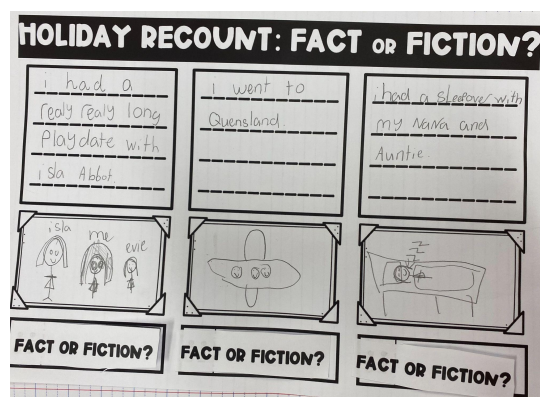 HOLIDAY RECOUNT: FACT OR FICTION?
i had a
realy realy long
Playdate with
isla Abbot.
I went to
Quensland.
i had a Sleepover with
my NaNa and
Auntie.
isla
me
evie
z
z
z
FACT OR FICTION?
FACT OR FICTION?
FACT OR FICTION?